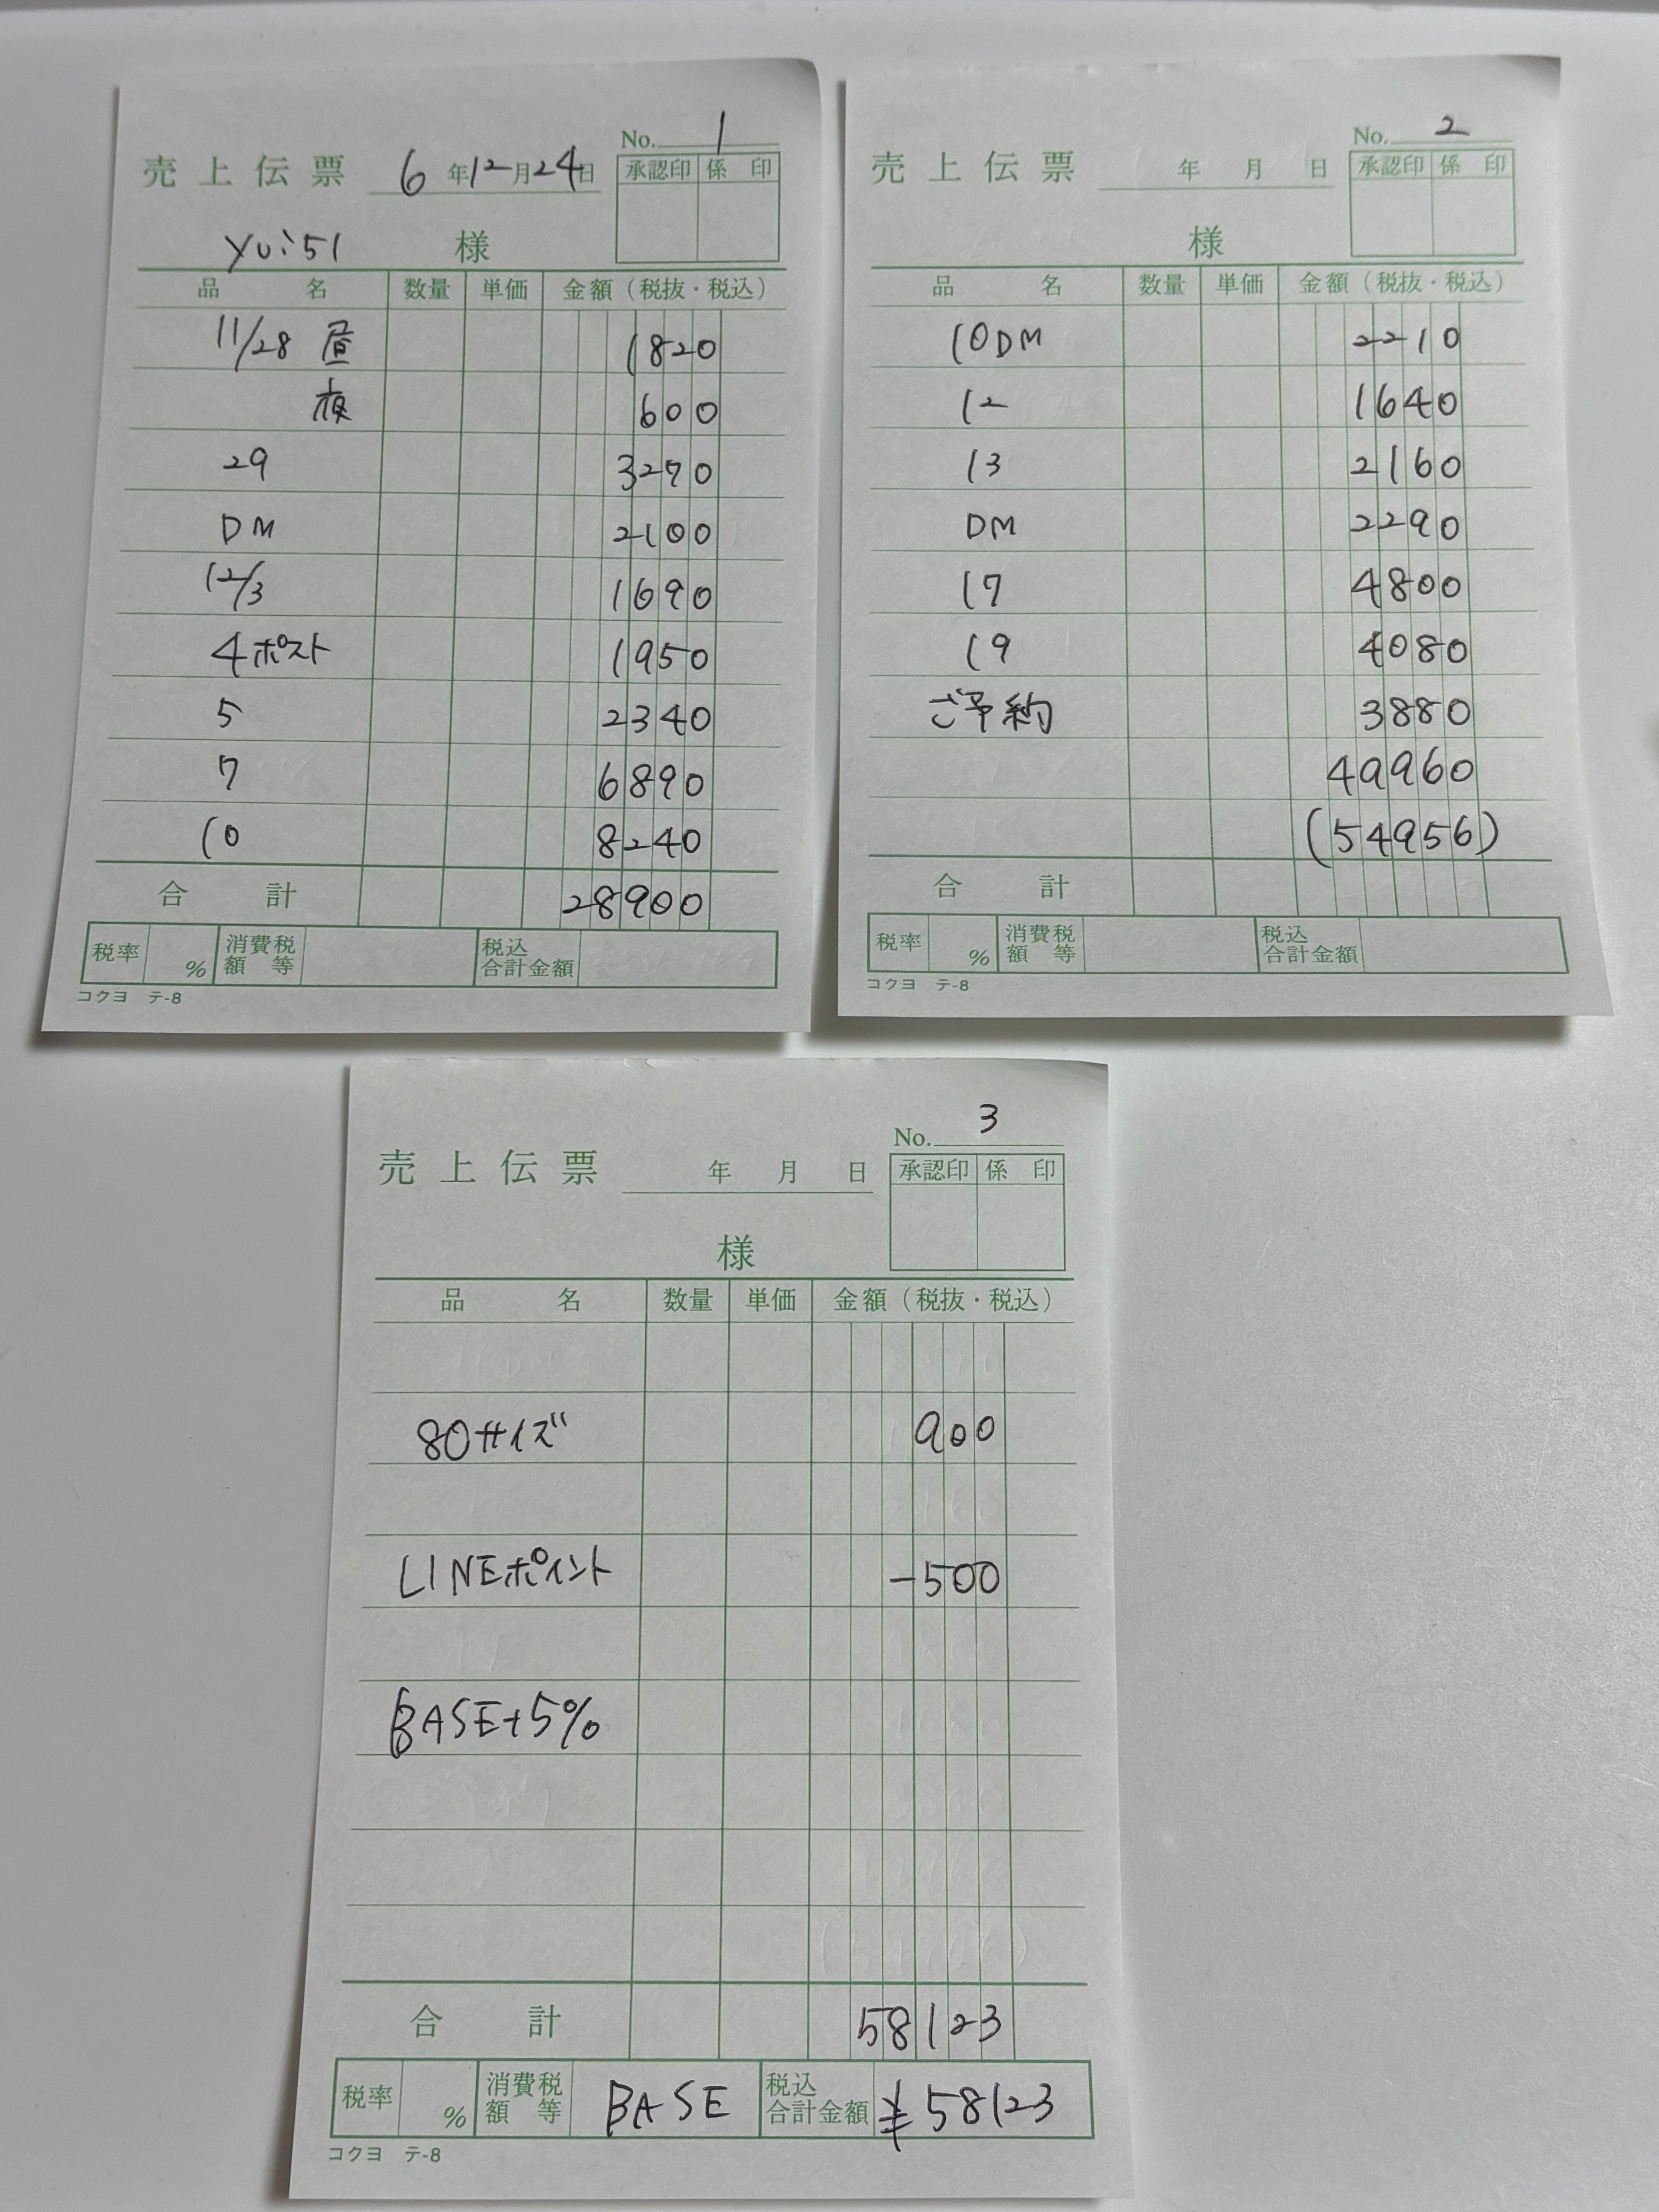 No. 1
売上伝票 6年12月24日
承認印 係印
yui51 様
品名 数量 単価 金額（税抜・税込）
11/28 昼 1820
夜 600
29 3270
DM 2100
12/3 1690
4ポスト 1950
5 2340
7 6890
10 8240
合計 28900
税率 % 消費税額等 税込合計金額
コクヨ テ-8
No. 2
売上伝票 年 月 日
承認印 係印
様
品名 数量 単価 金額（税抜・税込）
10DM 2210
12 1640
13 2160
DM 2290
17 4800
19 4080
ご予約 3880
49960
(54956)
合計
税率 % 消費税額等 税込合計金額
コクヨ テ-8
No. 3
売上伝票 年 月 日
承認印 係印
様
品名 数量 単価 金額（税抜・税込）
80サイズ 900
LINEポイント -500
BASE+5%
合計 58123
税率 % 消費税額等 BASE 税込合計金額 ¥58123
コクヨ テ-8